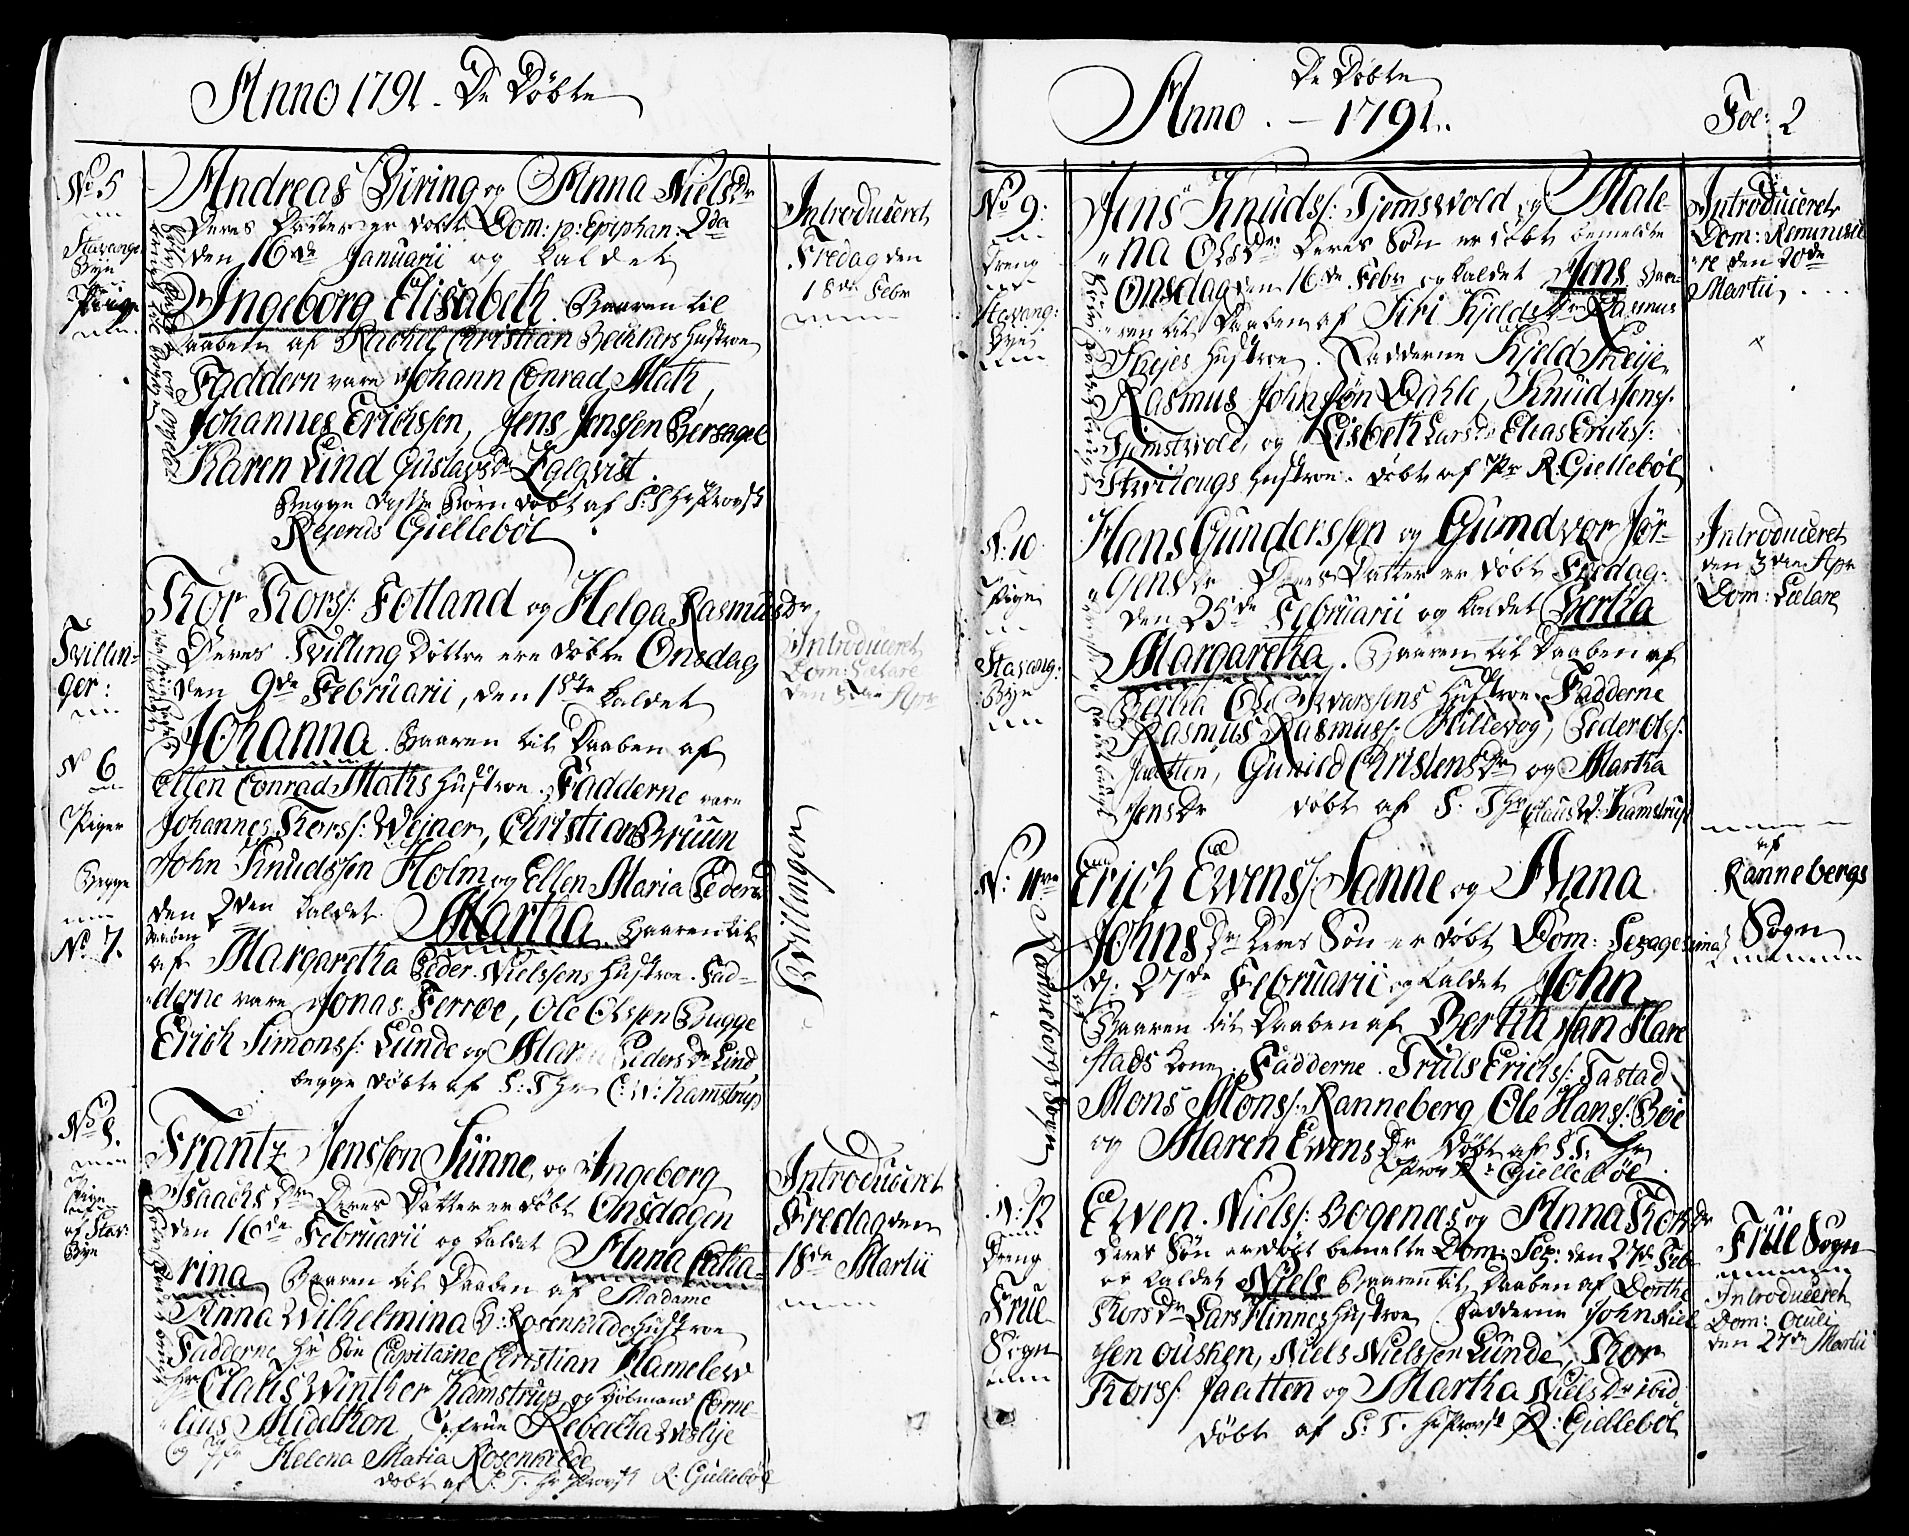 Anno 1791. De Døbte
No 5
Stavanger
Bye
Pige
Andreas Biring og Anna Nielsdr
Deres Datter er døbt Dom: p: Epiphan: 2da
den 16de Januarii og kaldet
Ingeborg Elisabeth. Baaren til
Daaben af Rachel Christian Hustroe
Faddern vare Johann Conrad Math,
Johannes Erichssen, Jens Jenssen Bersagel
Karen Lind Gustavsdr
Begge disse Børn døbt af S: T: Hr Provst
Gjellebøl
Introduceret
Fredag den
18de Febr
Tvillin-
ger:
No 6
Piger
Begge
No 7.
Thor Thorss: Fotland og Helga Rasmusdr
Deres Tvilling Døttre ere døbte Onsdag
den 9de Februarii, den 1ste kaldet
Johanna. Baaren til Daaben af
Ellen Conrad Maths Hustroe. Fadderne vare
Johannes Thorss: Weiner, Christian Bruun
John Knudssen Holm og Ellen Maria Pedersdr
den 2den kaldet Martha Baaren til
Daaben
af Margaretha Peder Nielssens Hustroe. Fad-
derne vare Jonas Ferroe, Ole Olssen Bugge
Erich Simonss: Lunde og Maria Pedersdr Lind
begge døbte af S: T Hr C: W: Kamstrup
Introduceret
Dom: Lætare
den 3die Apr
Tvillinger
No 8.
Pige
af Stav:
Bye
Frantz Jenssen Sünne, og Ingeborg
Isaachsdr Deres Datter er døbt Onsdagen
den 16de Februarii og kaldet Anna Catha-
rina Baaren til Daaben af Madame
Anna Wilhelmina B: Rosenkilde Hustroe
Fadderne Hr Søe Capitaine Christian Hamelew
Hr Claus Winther Kamstrup og Kjøbmand Corne-
lius Midelthon, Jomfrue Rebecka
og Jfr Helena Maria Rosenkilde
døbt af S: T. Hr Provst R: Gjellebøl
Introduceret
Fredag den
18de Martii
De Døbte
Anno. - 1791.
Fol: 2
No 9:
Dreng
Stavang:
Bye
Jens Knudss: Tjemsvold og Male-
na Olsdr Deres Søn er døbt bemeldte
Onsdag den 16de Febr og kaldet Jens Baa-
ren til Daaben af Siri Kjeldsdr Rasmus
Hustroe. Fadderne Kjeld
Rasmus Johnsøn Dahle, Knud Jenss:
Tjemsvold og Lisbeth Larsdr Elias Erichss:
Hustroe. døbt af Pr R. Gjellebøl
Introduceret
Dom: Reminisce
re den 20de
Martii
N: 10
Pige
Stavang:
Bye
Hans Gunderssen og Gundvor Jør-
gensdr Deres Datter er døbt Fredag
den 25de Februarii og kaldet Bertha
Margaretha. Baaren til Daaben af
Bertha Ole Hustroe. Fadderne
Rasmus Rasmuss: Hillevog, Peder Olss:
Jaatten, Gunild Christensdr og Martha
Jensdr døbt af S: T Hr Claus W: Kamstrup
Introduceret
den 3die Apr
Dom: Lætare
N: 11
af Ranneborgs Sogn
Erich Ewenss: Sanne og Anna
Johnsdr Deres Søn er døbt Dom: Sexagesima
d: 27de Februarii og kaldet John
Baaren til Daaben af Bertha Jan Hare
stads Kone. Fadderne. Truls Erichs: Tastad
Mons Monss: Ranneberg, Ole Hanss: Bøe
og Maren Ewensdr døbt af S: T: Hr
Provst R: Gjellebøl
af
Rannebergs
Sogn
N: 12
Dreng
Frue
Sogn
Ewen Nielss: Bogenæs og Anna Thorsdr
Deres Søn er døbt bemelte Dom: Sex: den 27de Feb
og kaldet Niels Baaren til Daaben af Dorthe
Thorsdr Lars Hinnes Hustroe. Fadderne John Niel
sen Ousken, Niels Nielssen Lunde, Thor
Thorss: Jaatten og Martha Nielsdr ibid
døbt af S: T. Hr Provst R: Gjellebøl
Frue Sogn
Introduceret
Dom: Oculi
den 27de Martii